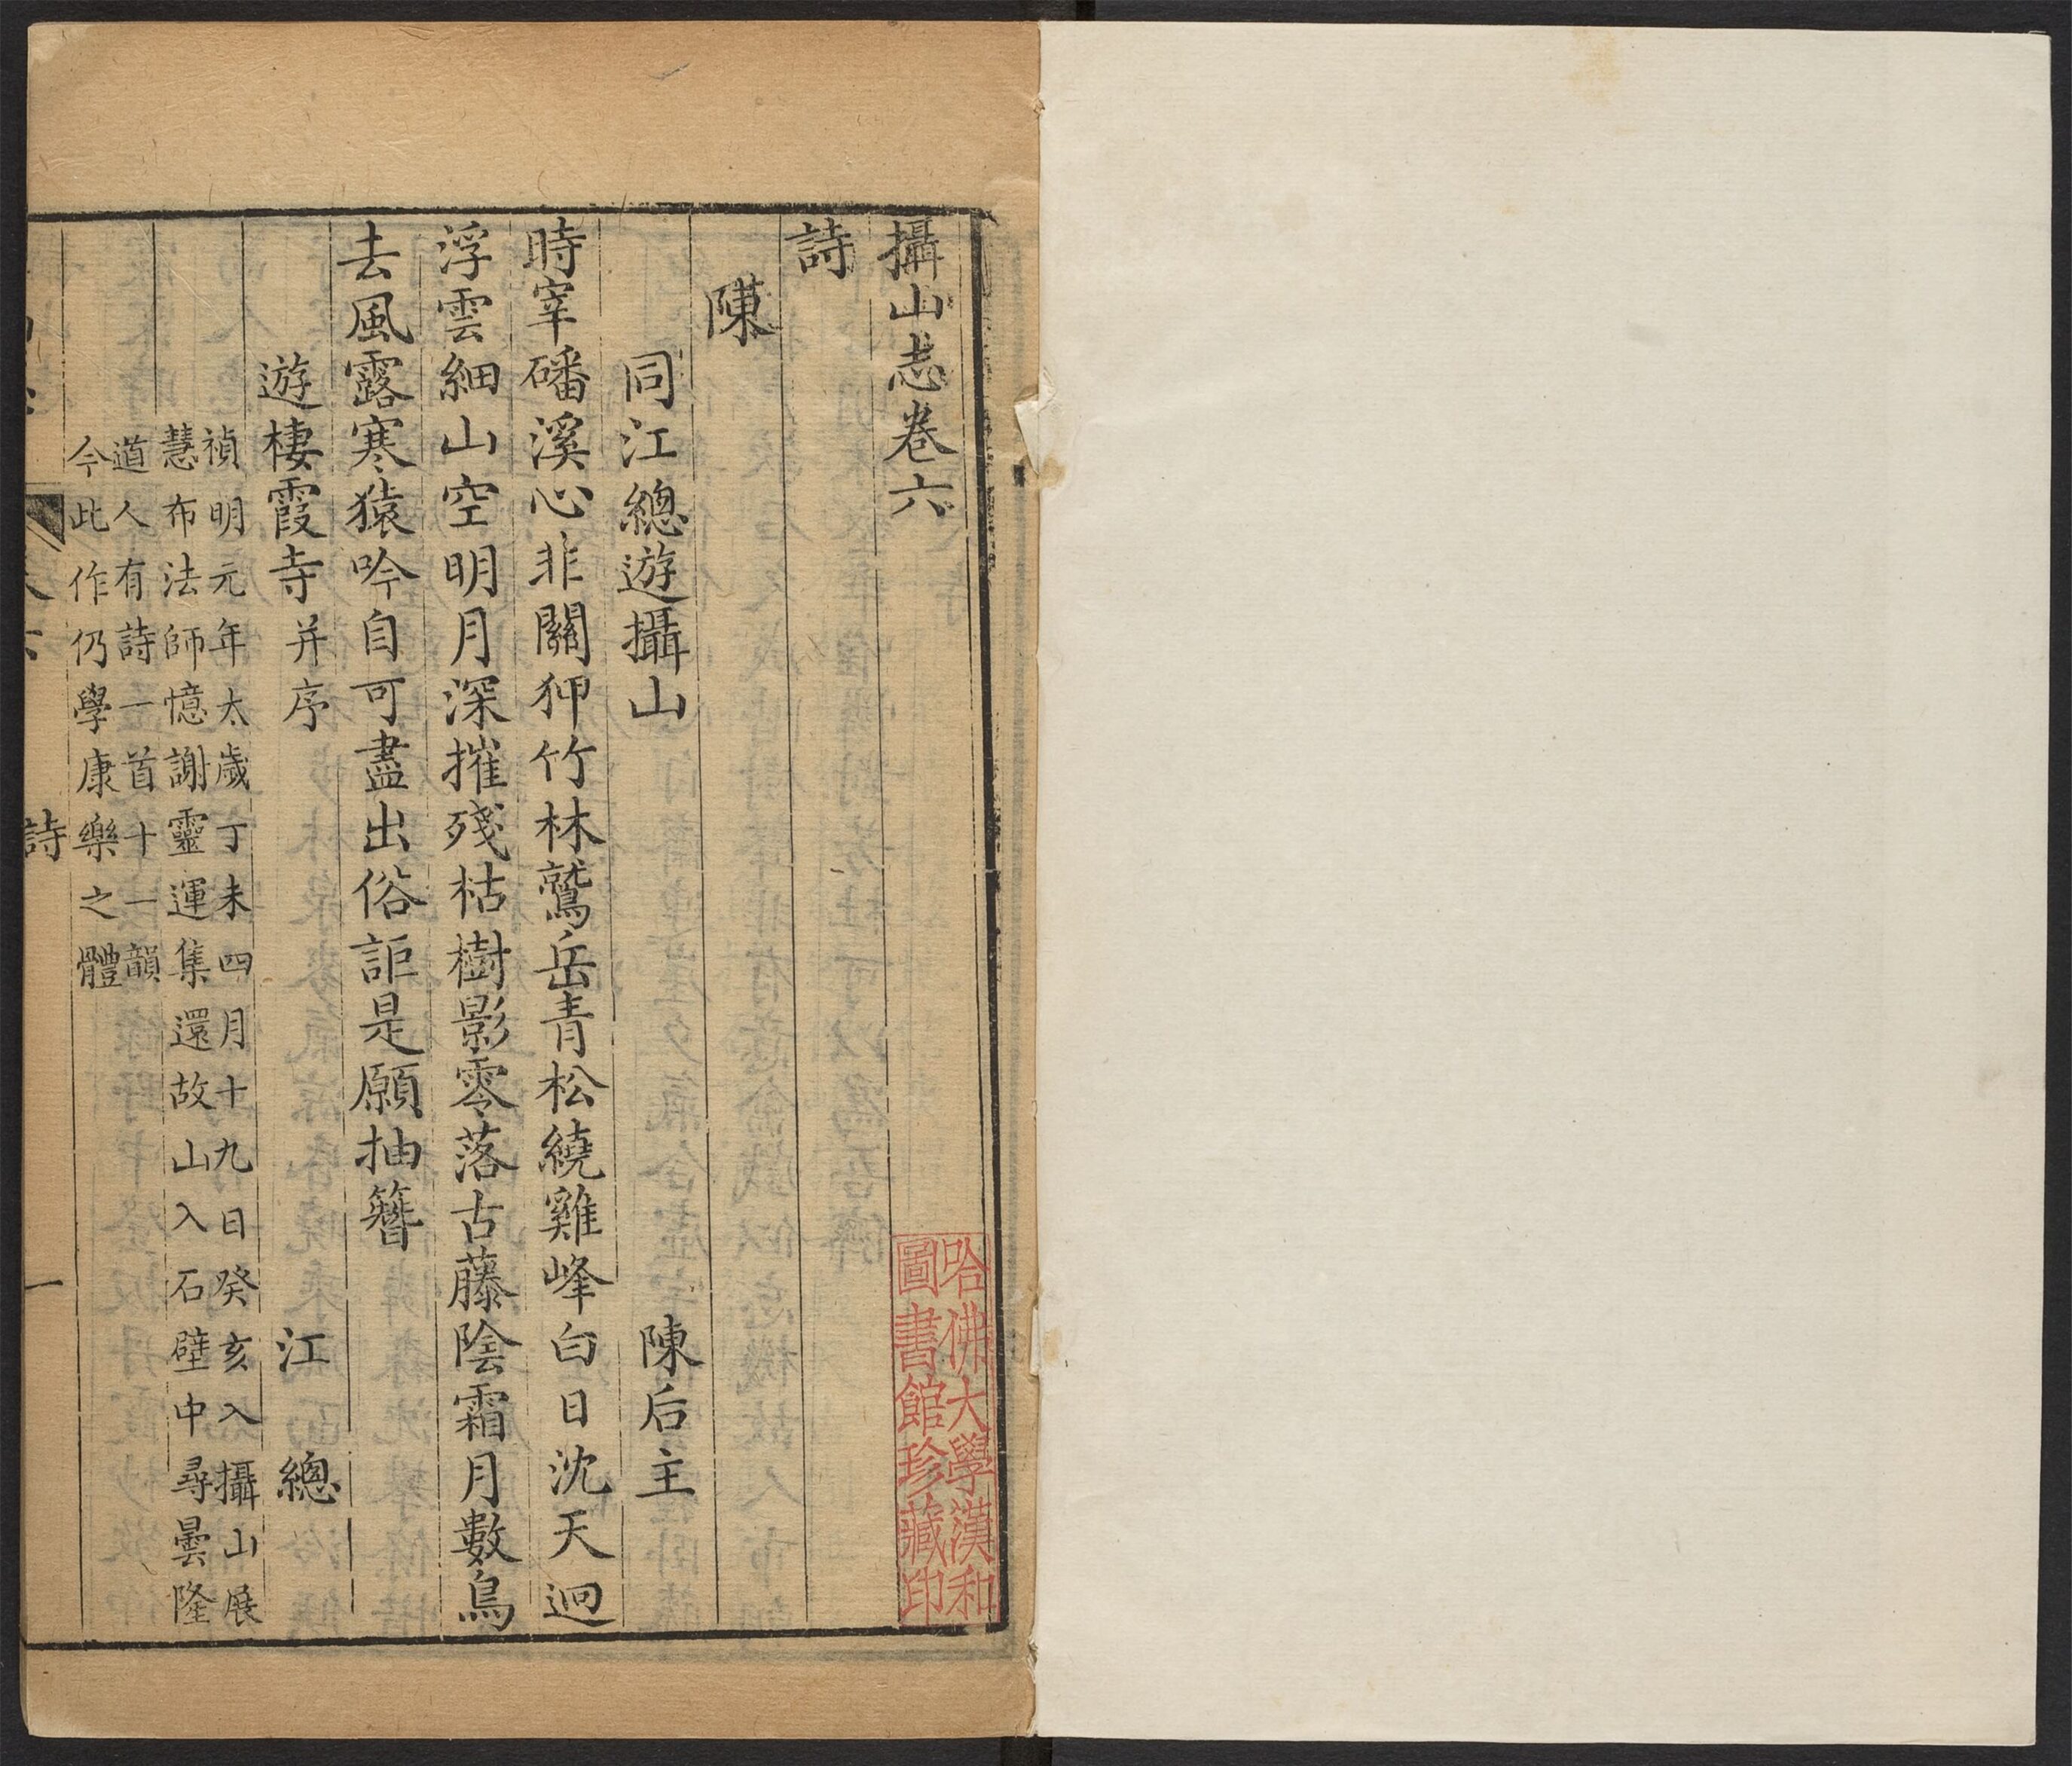 攝山志卷六
詩
陳
同江總遊攝山 陳后主
時宰磻溪心非關狎竹林鷲岳青松繞雞峰白日沈天迥
浮雲細山空明月深摧殘枯樹影零落古藤陰霜月數鳥
去風露寒猿吟自可盡出俗詎是願抽簪
遊棲霞寺并序 江總
禎明元年太歲丁未四月十九日癸亥入攝山展
慧布法師憶謝靈運集還故山入石壁中尋曇隆
道人有詩一首十一韻
今此作仍學康樂之體
詩 一
哈佛大學漢和
圖書館珍藏印